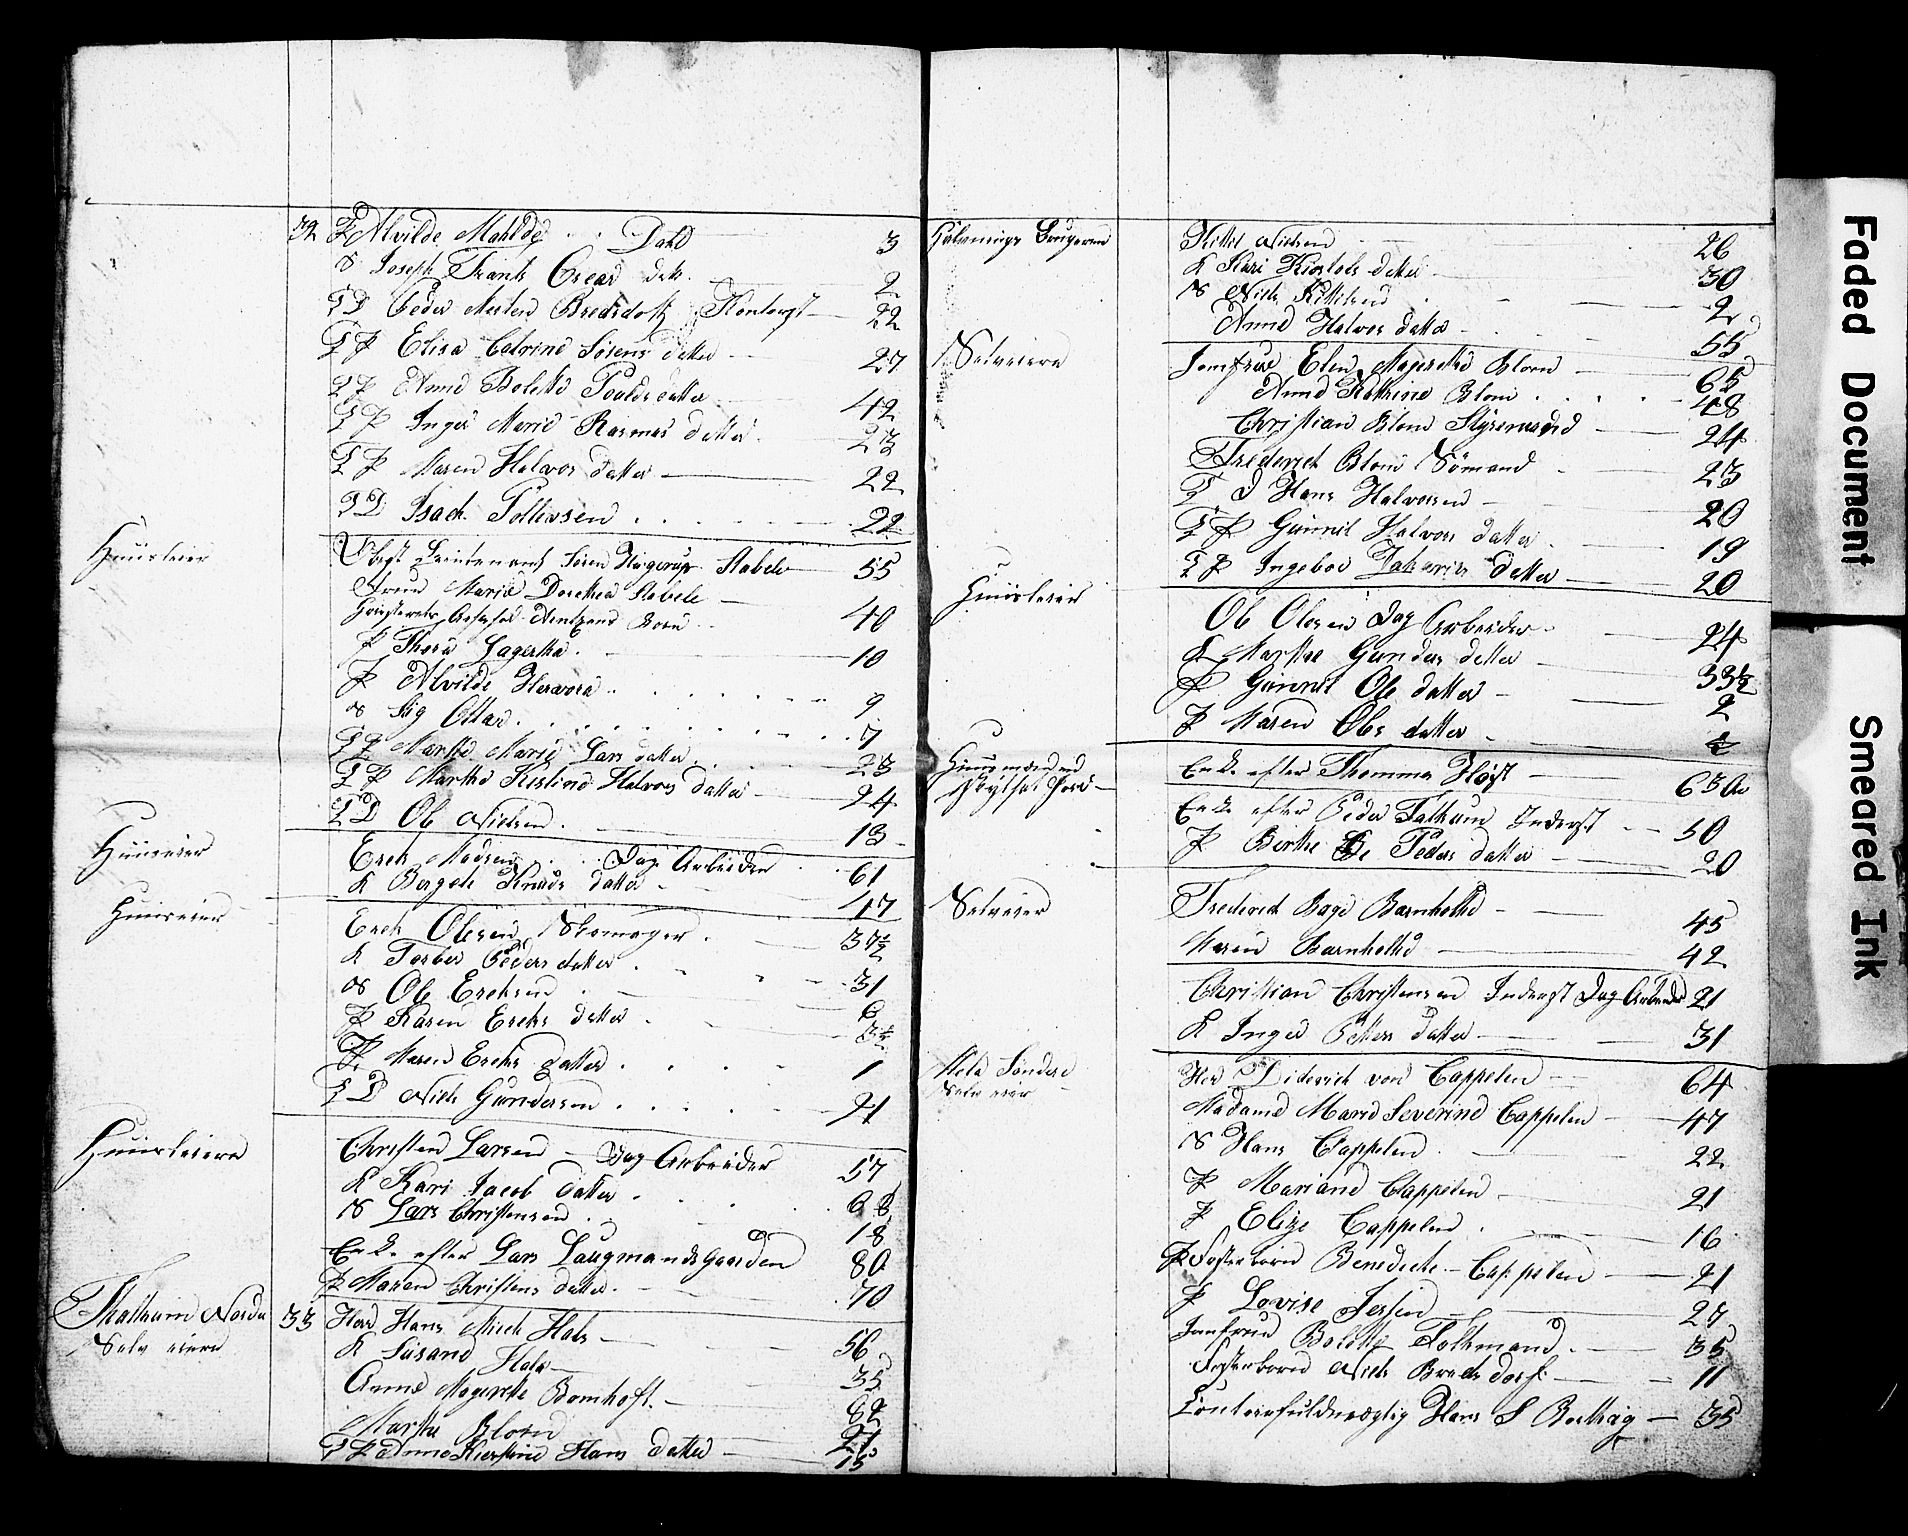 32 P Alvilde Mahlde Dahl 3
S Joseph Frants Oscar do 2
TD Peder Morten Bredsdorff Kontorist 22
TP Elisa Catrine Sørens datter 27
TP Anne Bolette Poulds datter 42
TP Inger Marie Rasmus datter 23
TP Maren Halvors datter 22
TD Isach Tollevsen 22
Huusleier Obrst Leutenant Søren Stabele 55
Frue Maria Dorothea Stabele 40
Børn
P Thora Lagertha 10
P Alvilde Hervora 9
S Stig Ottar 7
TP Marthe Marie Lars datter 23
TP Marthe Kirstine Halvors datter 24
TD Ole Nielsen 13
Huuseier Erek Madsen Dag Arbeider 61
K Borgele Knuds datter 47
Huuseier Erek Olesen Skomager 37½
K Torber Peders datter 31
S Ole Ereksen 6
P Karen Ereks datter 3½
P Maren Ereks datter 1
TD Niels Gundersen 21
Huusleiere Christen Larsen Dag Arbeider 57
K Kari Jacob datter 68
S Lars Christensen 18
Enke efter Lars Laugmandsgaarden 80
P Maren Christens datter 70
Thalheim Nordre 33 Herr Hans Mich Hals 56
Selveiere K Susand Hals 35
Anne Magrethe Bomhoft 82
Marthe Blom 21
TP Anne Kirstine Hans datter 15
Brugeren Kittel Nielsen 26
K Kari Kiostols datter 30
S Niels Kittelsen 2
Anne Halvors datter 55
Selveiere Jomfrue Elen Magrethe Blom 65
Anne Kathrine Blom 48
Christian Blom Styrmand 24
Frederich Blom Sømand 23
TD Hans Halvorsen 20
TP Gunnil Halvors datter 19
TP Ingebor Zakarias datter 20
Huusleier Ole Olesen Dag Arbeider 24
K Marthe Gunders datter 33½
P Gunnil Ole datter 2
P Maren Ole datter
Huusmænd Enke efter Thomma Høist 63
Enke efter Peder Falkum Inderst 50
P Birthe Peders datter 20
Selveier Frederick Bage Barnholdt 45
Maren Barnholdt 42
Christian Christensen Inderst Dag Arbeider 21
K Inger Peters datter 31
Mela Søndre Herr Diderich von Cappelen 64
Selveier Madame Marie Severine Cappelen 47
S Hans Cappelen 22
P Mariane Cappelen 21
P Elize Cappelen 16
P Fosterbarn Benedicte Cappelen 21
P Lovise Jessen 27
Jomfrue Bolette Folkmand 35
Fosterbarn Niels Bredsdorf 11
Contoirfuldmægtig Hans S 35
Faded Document
Smeared Ink